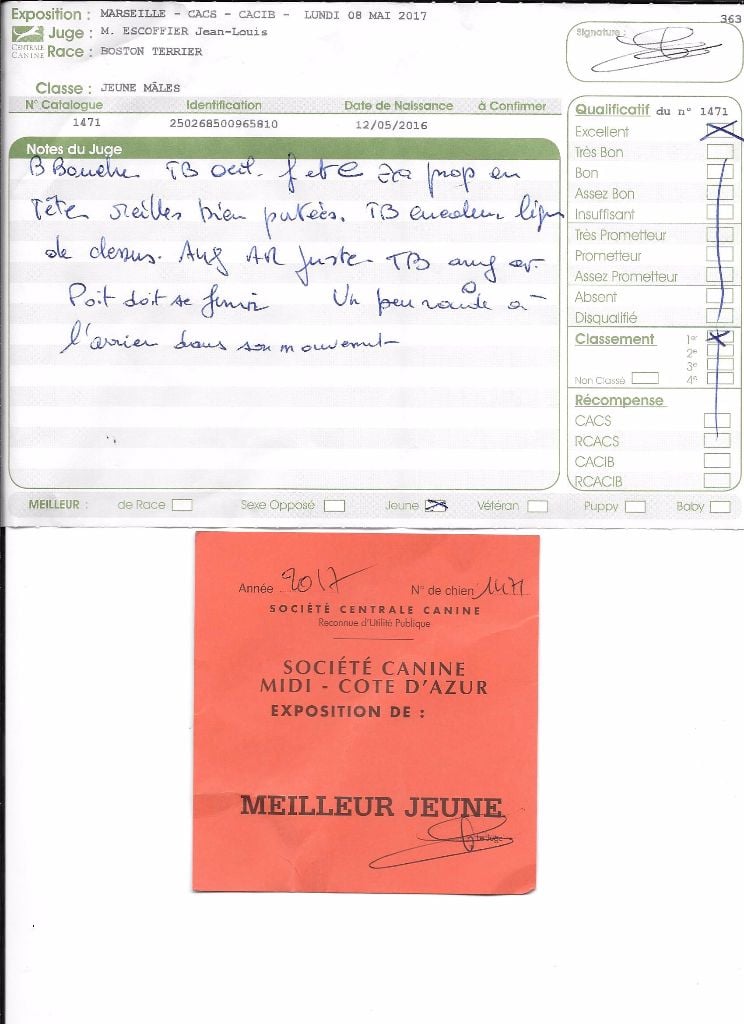 Exposition : MARSEILLE - CACS - CACIB - LUNDI 08 MAI 2017
363
CENTRALE CANINE
Juge : M. ESCOFFIER Jean-Louis
Race : BOSTON TERRIER
Signature :
Classe : JEUNE MÂLES
N° Catalogue Identification Date de Naissance à Confirmer
1471 250268500965810 12/05/2016
Notes du Juge
B Bouche TB oeil. prop en
Tête oreilles bien portées. TB encolure ligne
de dessus. Ang AR juste TB ang av.
Poit doit se fournir Un peu raide à
l'arrière dans son mouvement
Qualificatif du n° 1471
Excellent
Très Bon
Bon
Assez Bon
Insuffisant
Très Prometteur
Prometteur
Assez Prometteur
Absent
Disqualifié
Classement 1er
2e
3e
Non Classé 4e
Récompense
CACS
RCACS
CACIB
RCACIB
MEILLEUR : de Race Sexe Opposé Jeune Vétéran Puppy Baby
Année 2017 N° de chien 1471
SOCIÉTÉ CENTRALE CANINE
Reconnue d'Utilité Publique
SOCIÉTÉ CANINE
MIDI - COTE D'AZUR
EXPOSITION DE :
MEILLEUR JEUNE
Le Juge